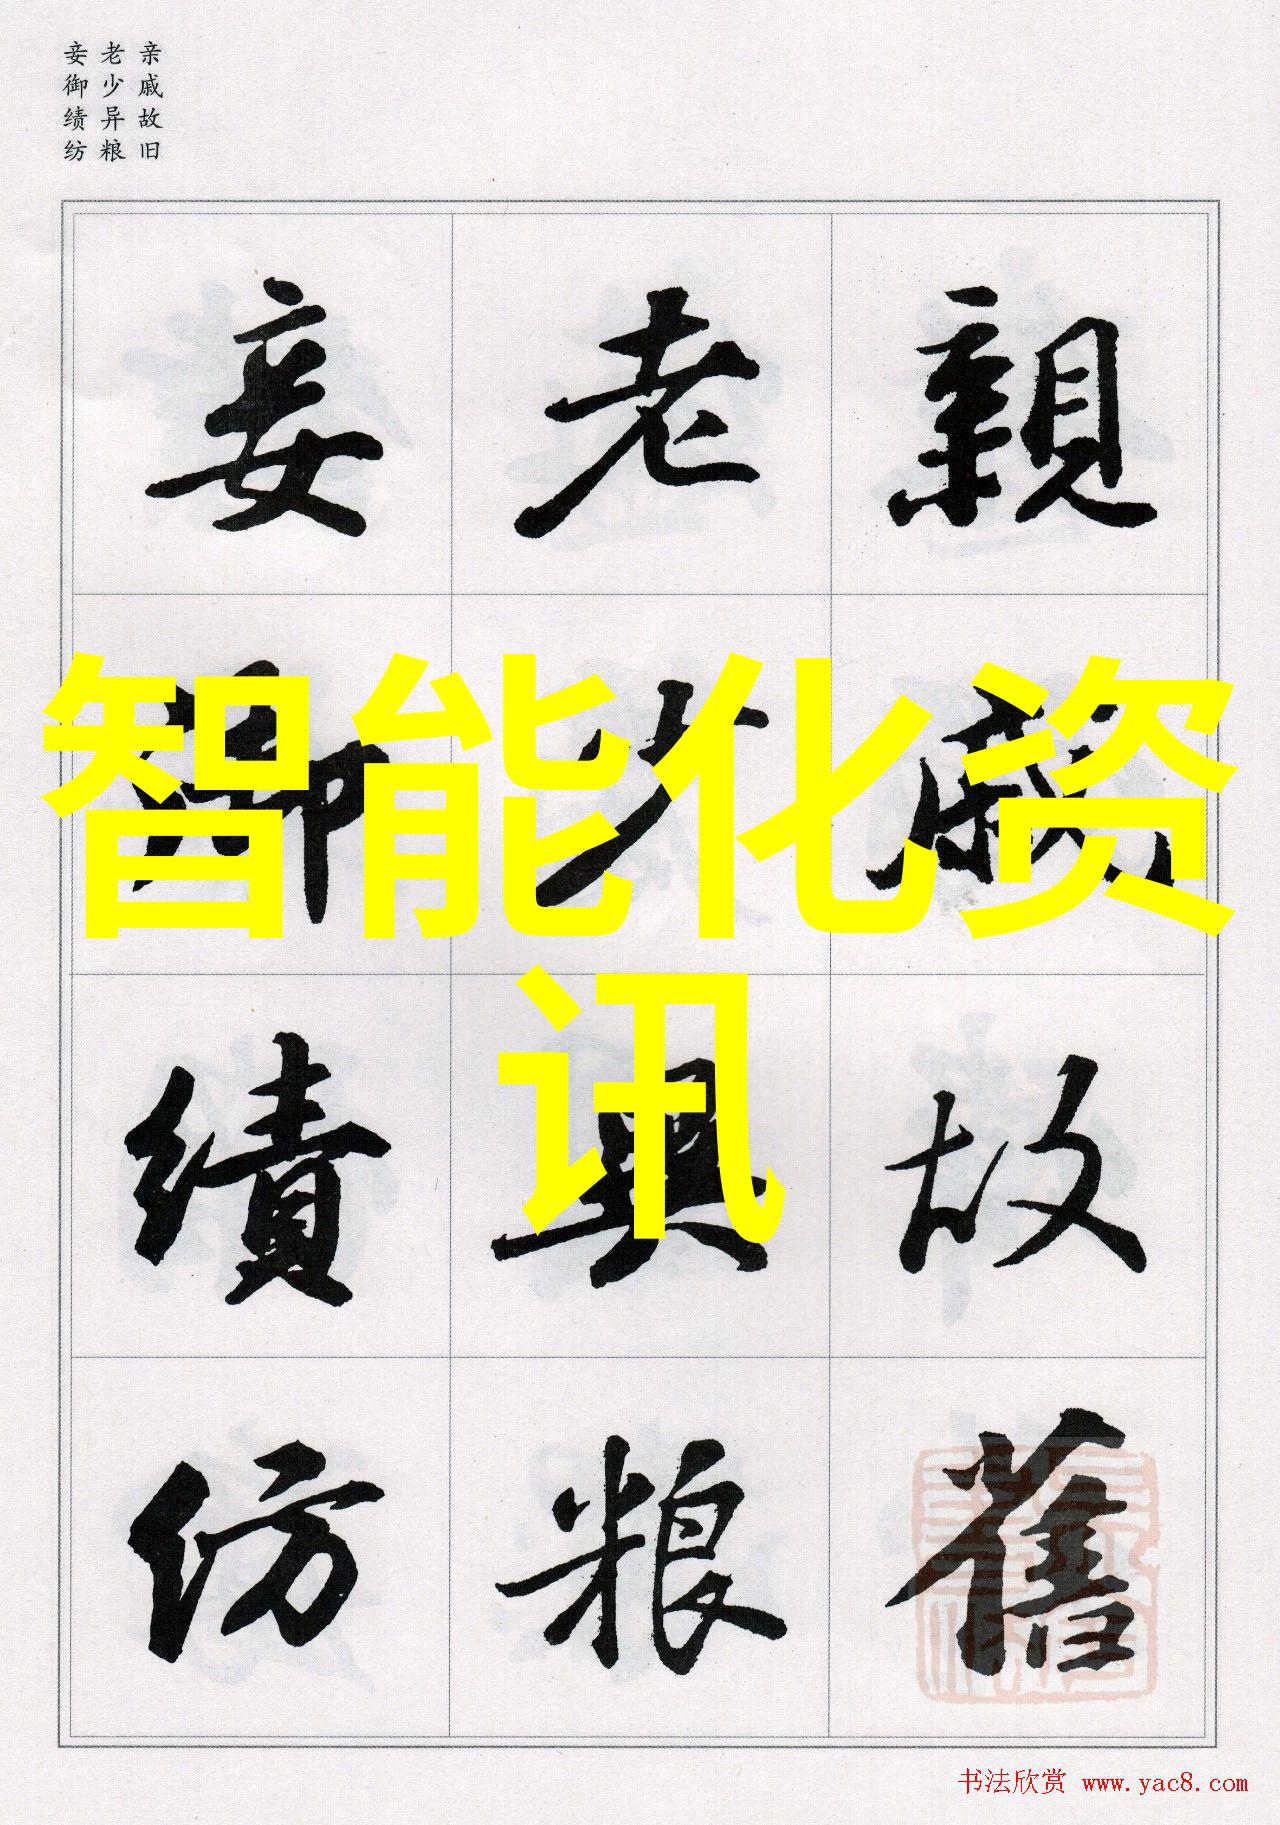 亲戚故旧
老少异粮
妾御绩纺
親戚故舊
老少異粮
妾御績紡
智能化资
讯
书法欣赏 www.yac8.com